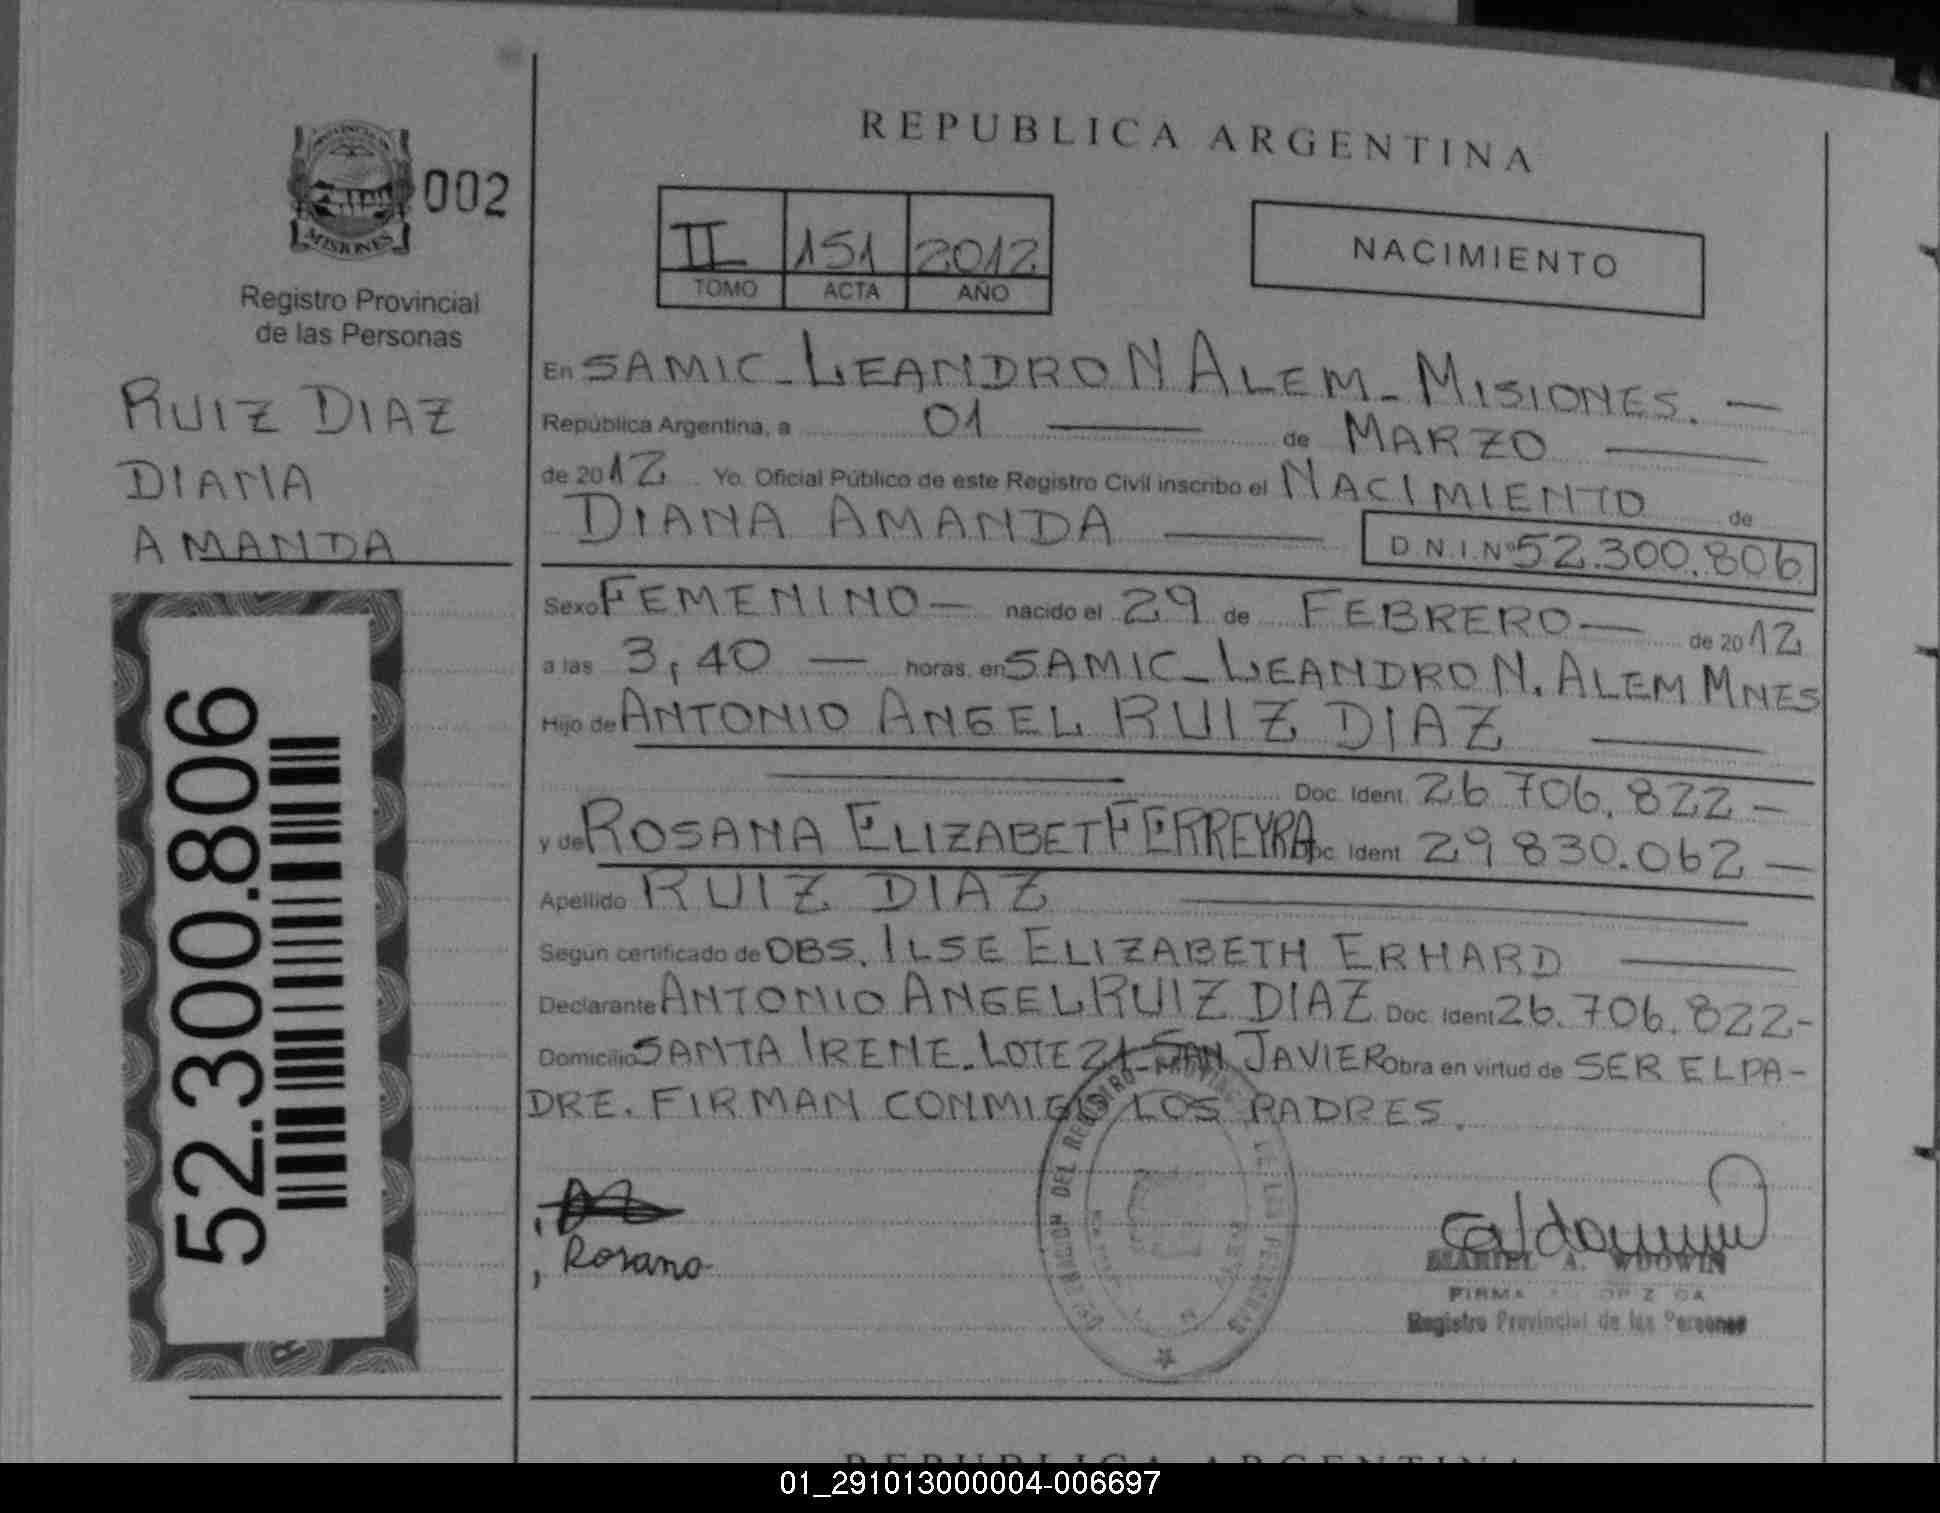 REPUBLICA ARGENTINA
MISIONES
002
Registro Provincial
de las Personas
II 151 2012
TOMO ACTA AÑO
NACIMIENTO
RUIZ DIAZ
DIANA
AMANDA
52.300.806
En SAMIC - LEANDRO N ALEM - MISIONES. —
República Argentina, a 01 — de MARZO —
de 2012 Yo, Oficial Público de este Registro Civil inscribo el NACIMIENTO de
DIANA AMANDA — D.N.I. Nº 52.300.806
Sexo FEMENINO — nacido el 29 de FEBRERO — de 2012
a las 3,40 — horas, en SAMIC - LEANDRO N. ALEM MNES
Hijo de ANTONIO ANGEL RUIZ DIAZ —
— Doc. Ident. 26 706.822 —
y de ROSANA ELIZABET FERREYRA Doc. Ident 29 830.062 —
Apellido RUIZ DIAZ —
Según certificado de OBS. ILSE ELIZABETH ERHARD —
Declarante ANTONIO ANGEL RUIZ DIAZ Doc. Ident 26.706.822-
Domicilio SANTA IRENE. LOTE 21 - SAN JAVIER Obra en virtud de SER EL PA-
DRE. FIRMAN CONMIGO LOS PADRES.
Rosana
MARIEL A. WDOWIN
Registro Provincial de las Personas
REPUBLICA ARGENTINA
01_291013000004-006697